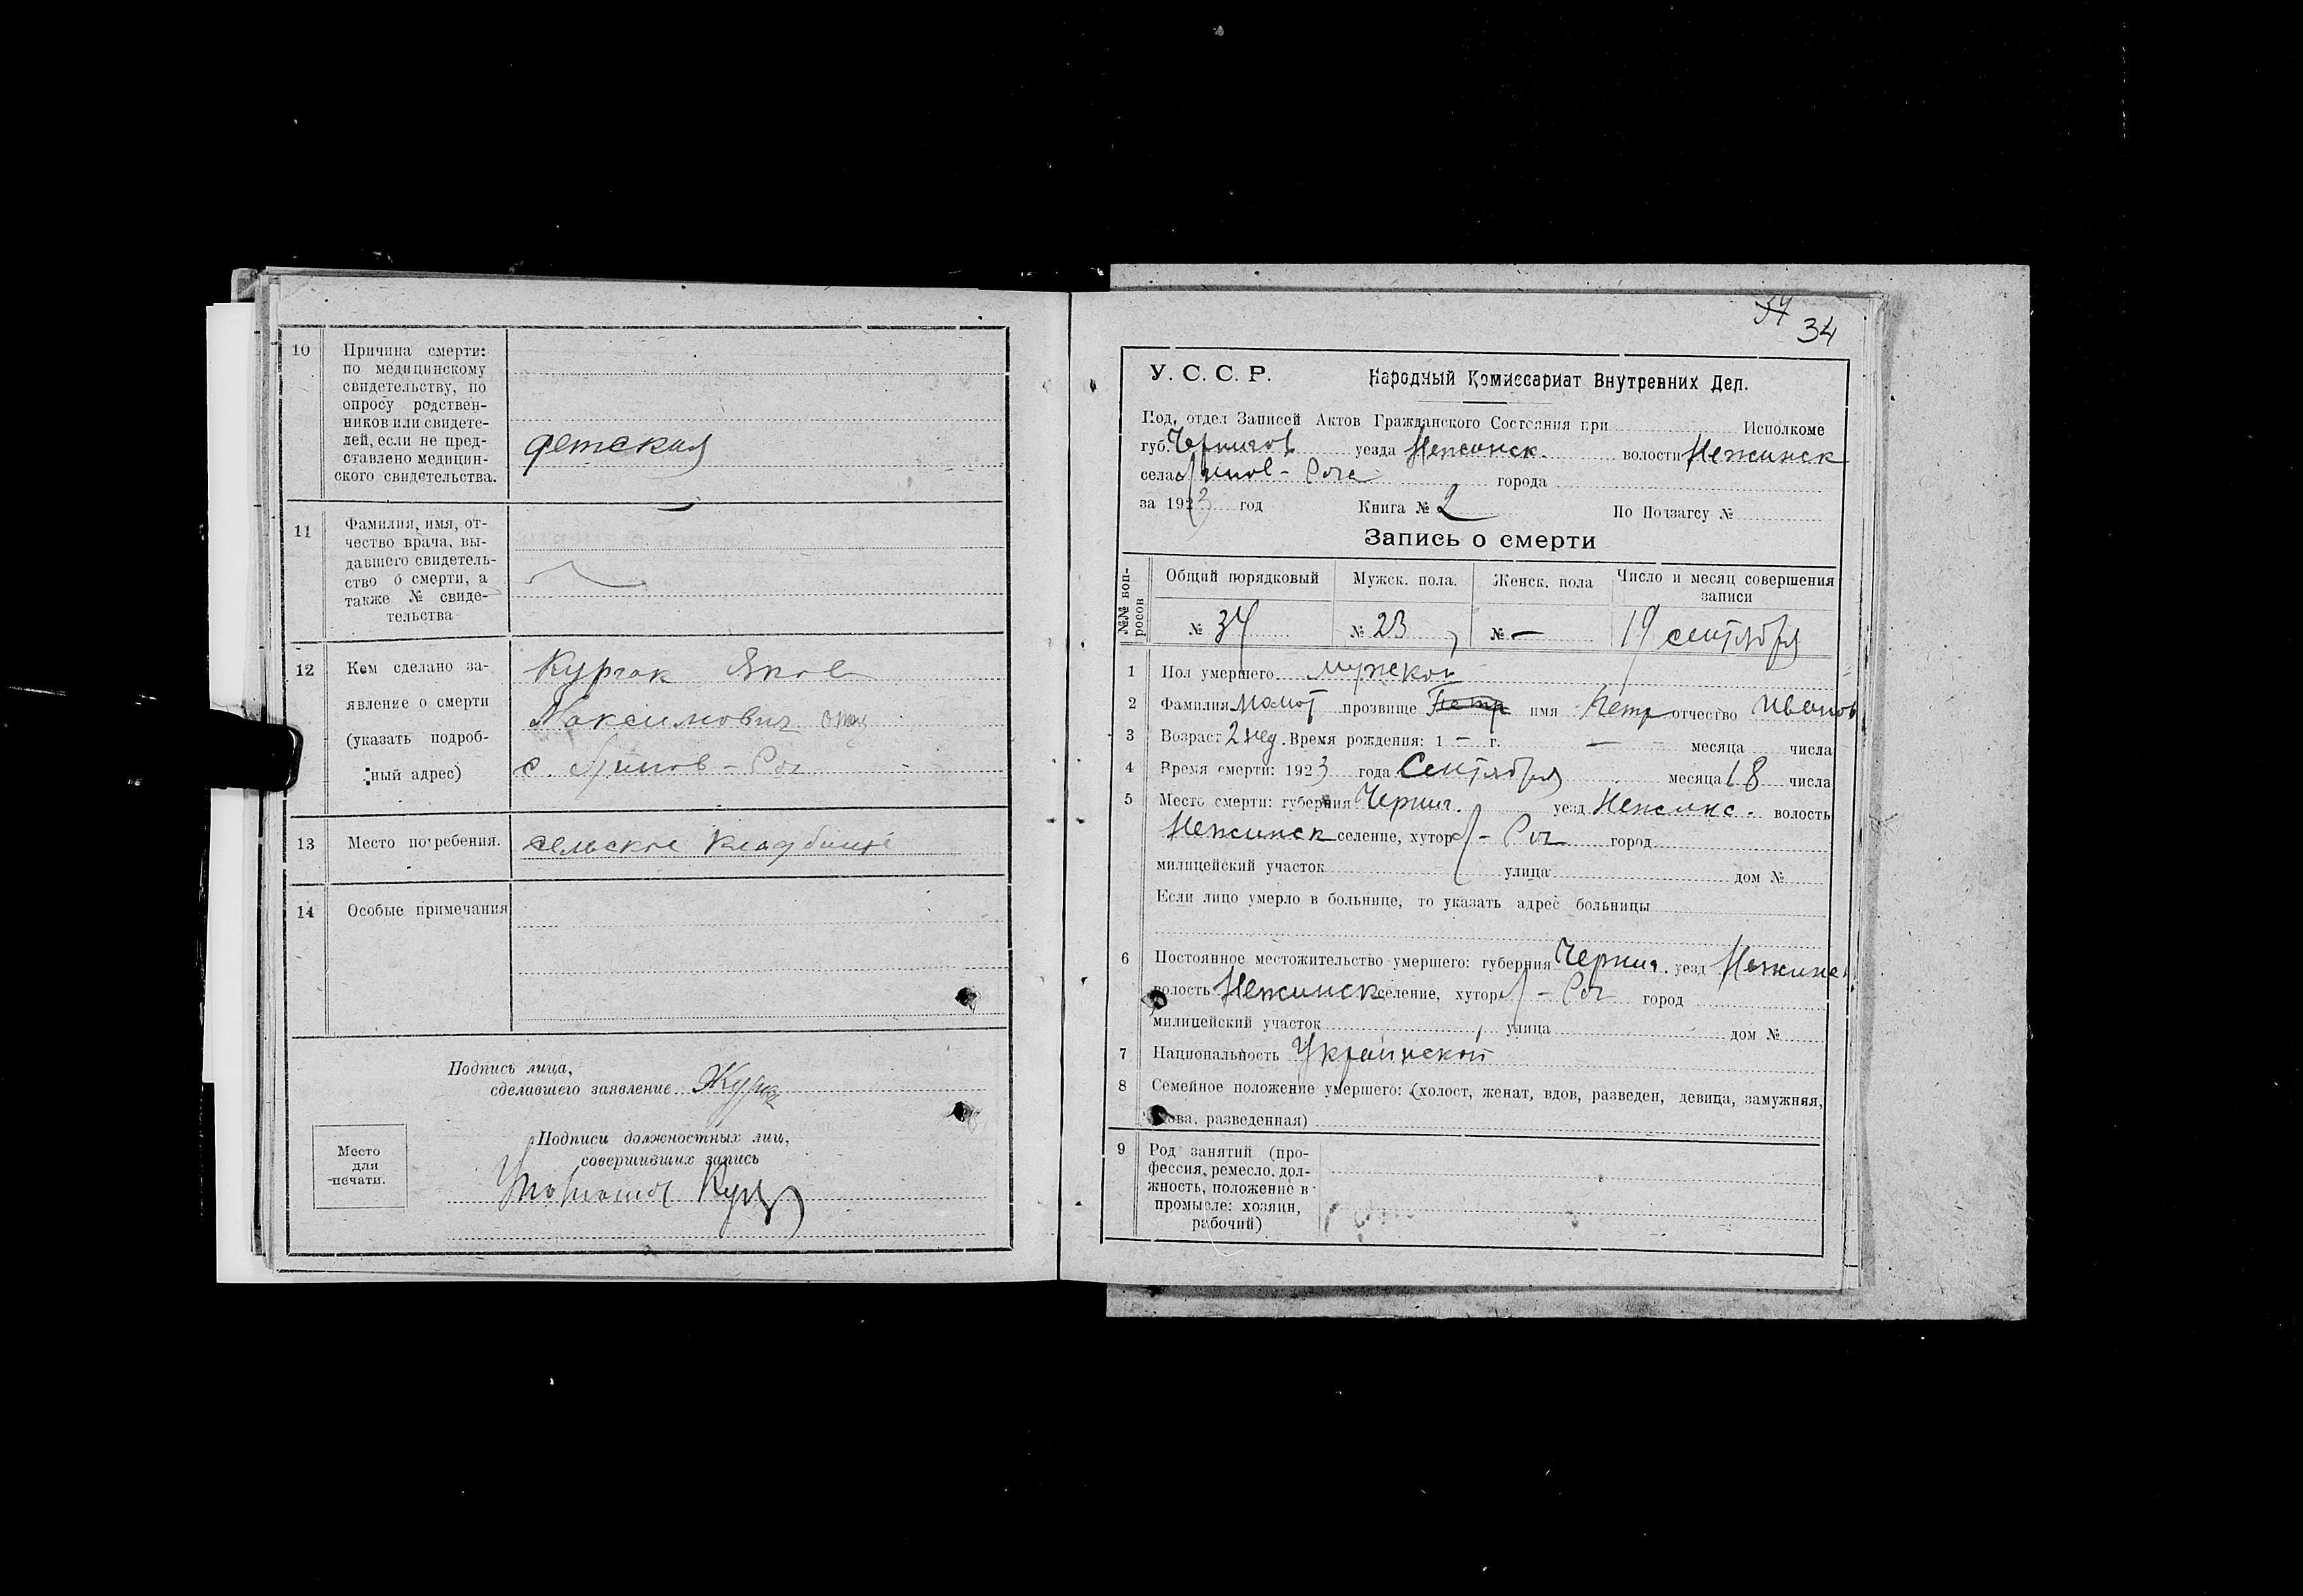 10 Причина смерти:
по медицинскому
свидетельству, по
опросу родствен-
ников или свидете-
лей, если не пред-
ставлено медицин-
ского свидетельства.
детская
11 Фамилия, имя, от-
чество врача, вы-
давшего свидетель-
ство о смерти, а
также № свиде-
тельства
12 Кем сделано за-
явление о смерти
(указать подроб-
ный адрес)
Кургак Яков
Максимович отец
с. Липов-Рог
13 Место погребения. сельское кладбище
14 Особые примечания
Подпись лица,
сделавшего заявление
Подписи должностных лиц,
совершивших запись
Место
для
печати.
34
34
У. С. С. Р. Народный Комиссариат Внутренних Дел.
Под. отдел Записей Актов Гражданского Состояния при Исполкоме
губ. Чернигов уезда Нежинск. волости Нежинск
села Липов-Рога города
за 1923 год Книга № 2 По Подзагсу №
Запись о смерти
№№ воп-
росов
Общий порядковый Мужск. пола. Женск. пола Число и месяц совершения
записи
№ 34 № 23 № — 19 сентября
1 Пол умершего мужской
2 Фамилия Мамот прозвище Петр имя Петр отчество Иванов
3 Возраст 2 нед. Время рождения: 1 — г. — месяца числа
4 Время смерти: 1923 года Сентября месяца 18 числа
5 Место смерти: губерния Черниг. уезд Нежинс. волость
Нежинск селение, хутор Л-Рог город
милицейский участок улица дом №
Если лицо умерло в больнице, то указать адрес больницы
6 Постоянное местожительство умершего: губерния Черниг. уезд Нежинс.
волость Нежинск селение, хутор Л-Рог город
милицейский участок улица дом №
7 Национальность Украинской
8 Семейное положение умершего: (холост, женат, вдов, разведен, девица, замужняя,
вдова, разведенная)
9 Род занятий (про-
фессия, ремесло, дол-
жность, положение в
промысле: хозяин,
рабочий)